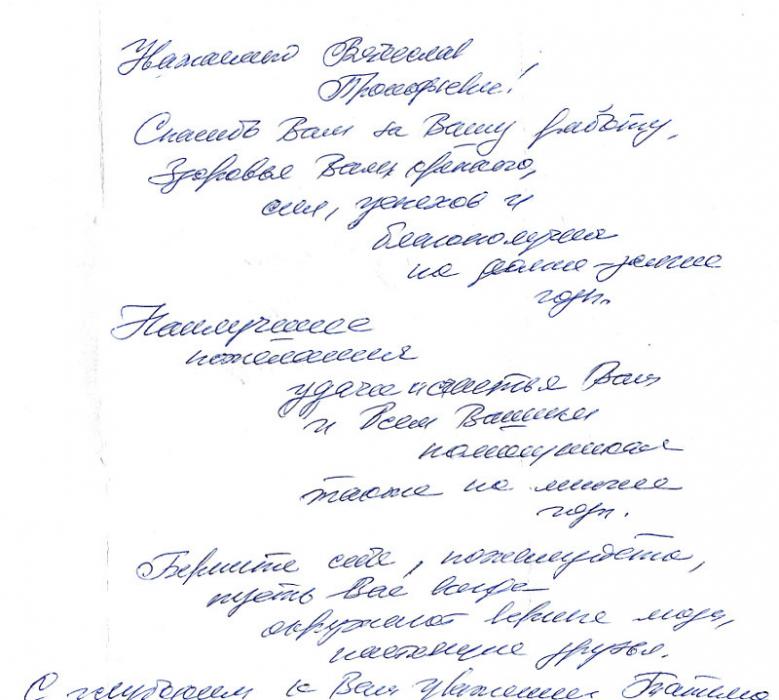 Уважаемый Вячеслав
Прокофьевич!
Спасибо Вам за Вашу работу,
Здоровья Вам крепкого,
сил, успехов и
благополучия
на долгие-долгие
годы.
Наилучшие
пожелания
удачи и счастья Вам
и Всем Вашим
помощникам
также на многие
годы.
Берегите себя, пожалуйста,
пусть Вас всегда
окружают верные люди,
настоящие друзья.
С глубоким к Вам уважением Татьяна